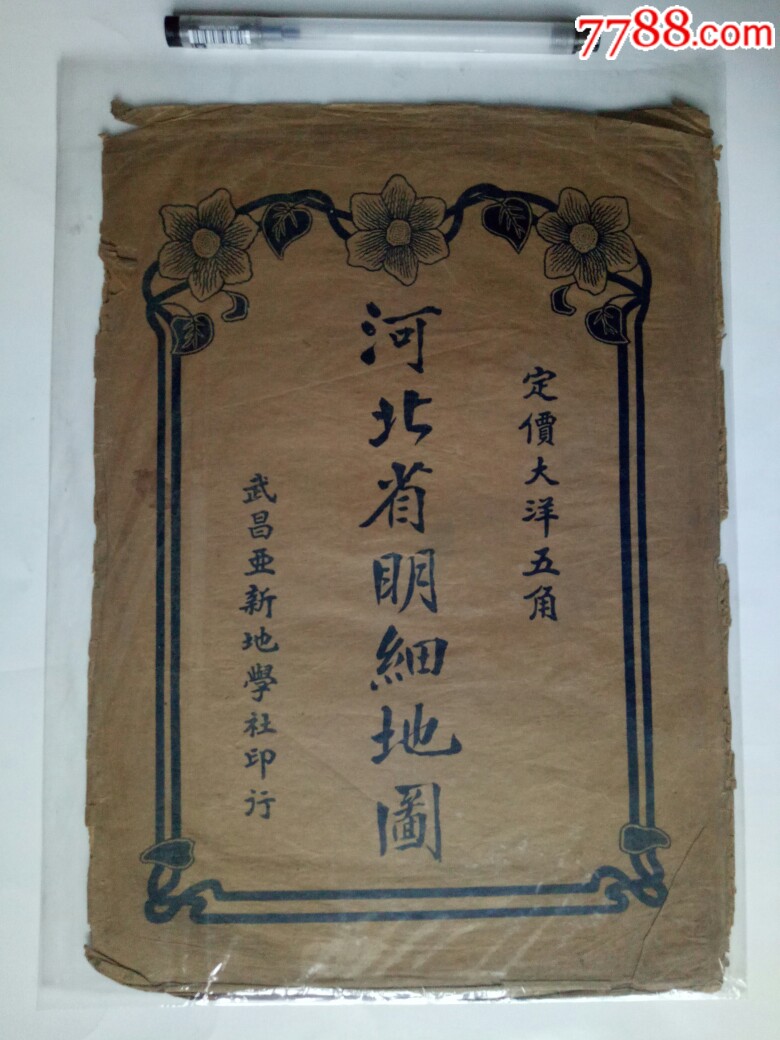 7788.com
定價大洋五角
河北省明細地圖
武昌亜新地學社印行